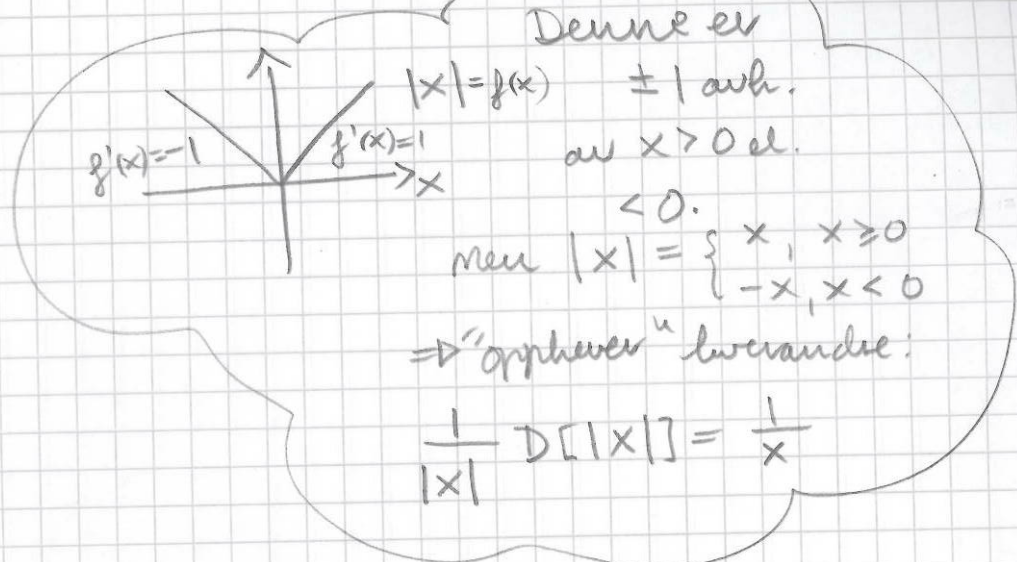 Denne er
|x|=f(x) ±1 avh.
f'(x)=-1 f'(x)=1 av x>0 el.
x
<0.
men |x| = { x, x≥0
-x, x<0
=> "opphever" hverandre:
1/|x| D[|x|] = 1/x